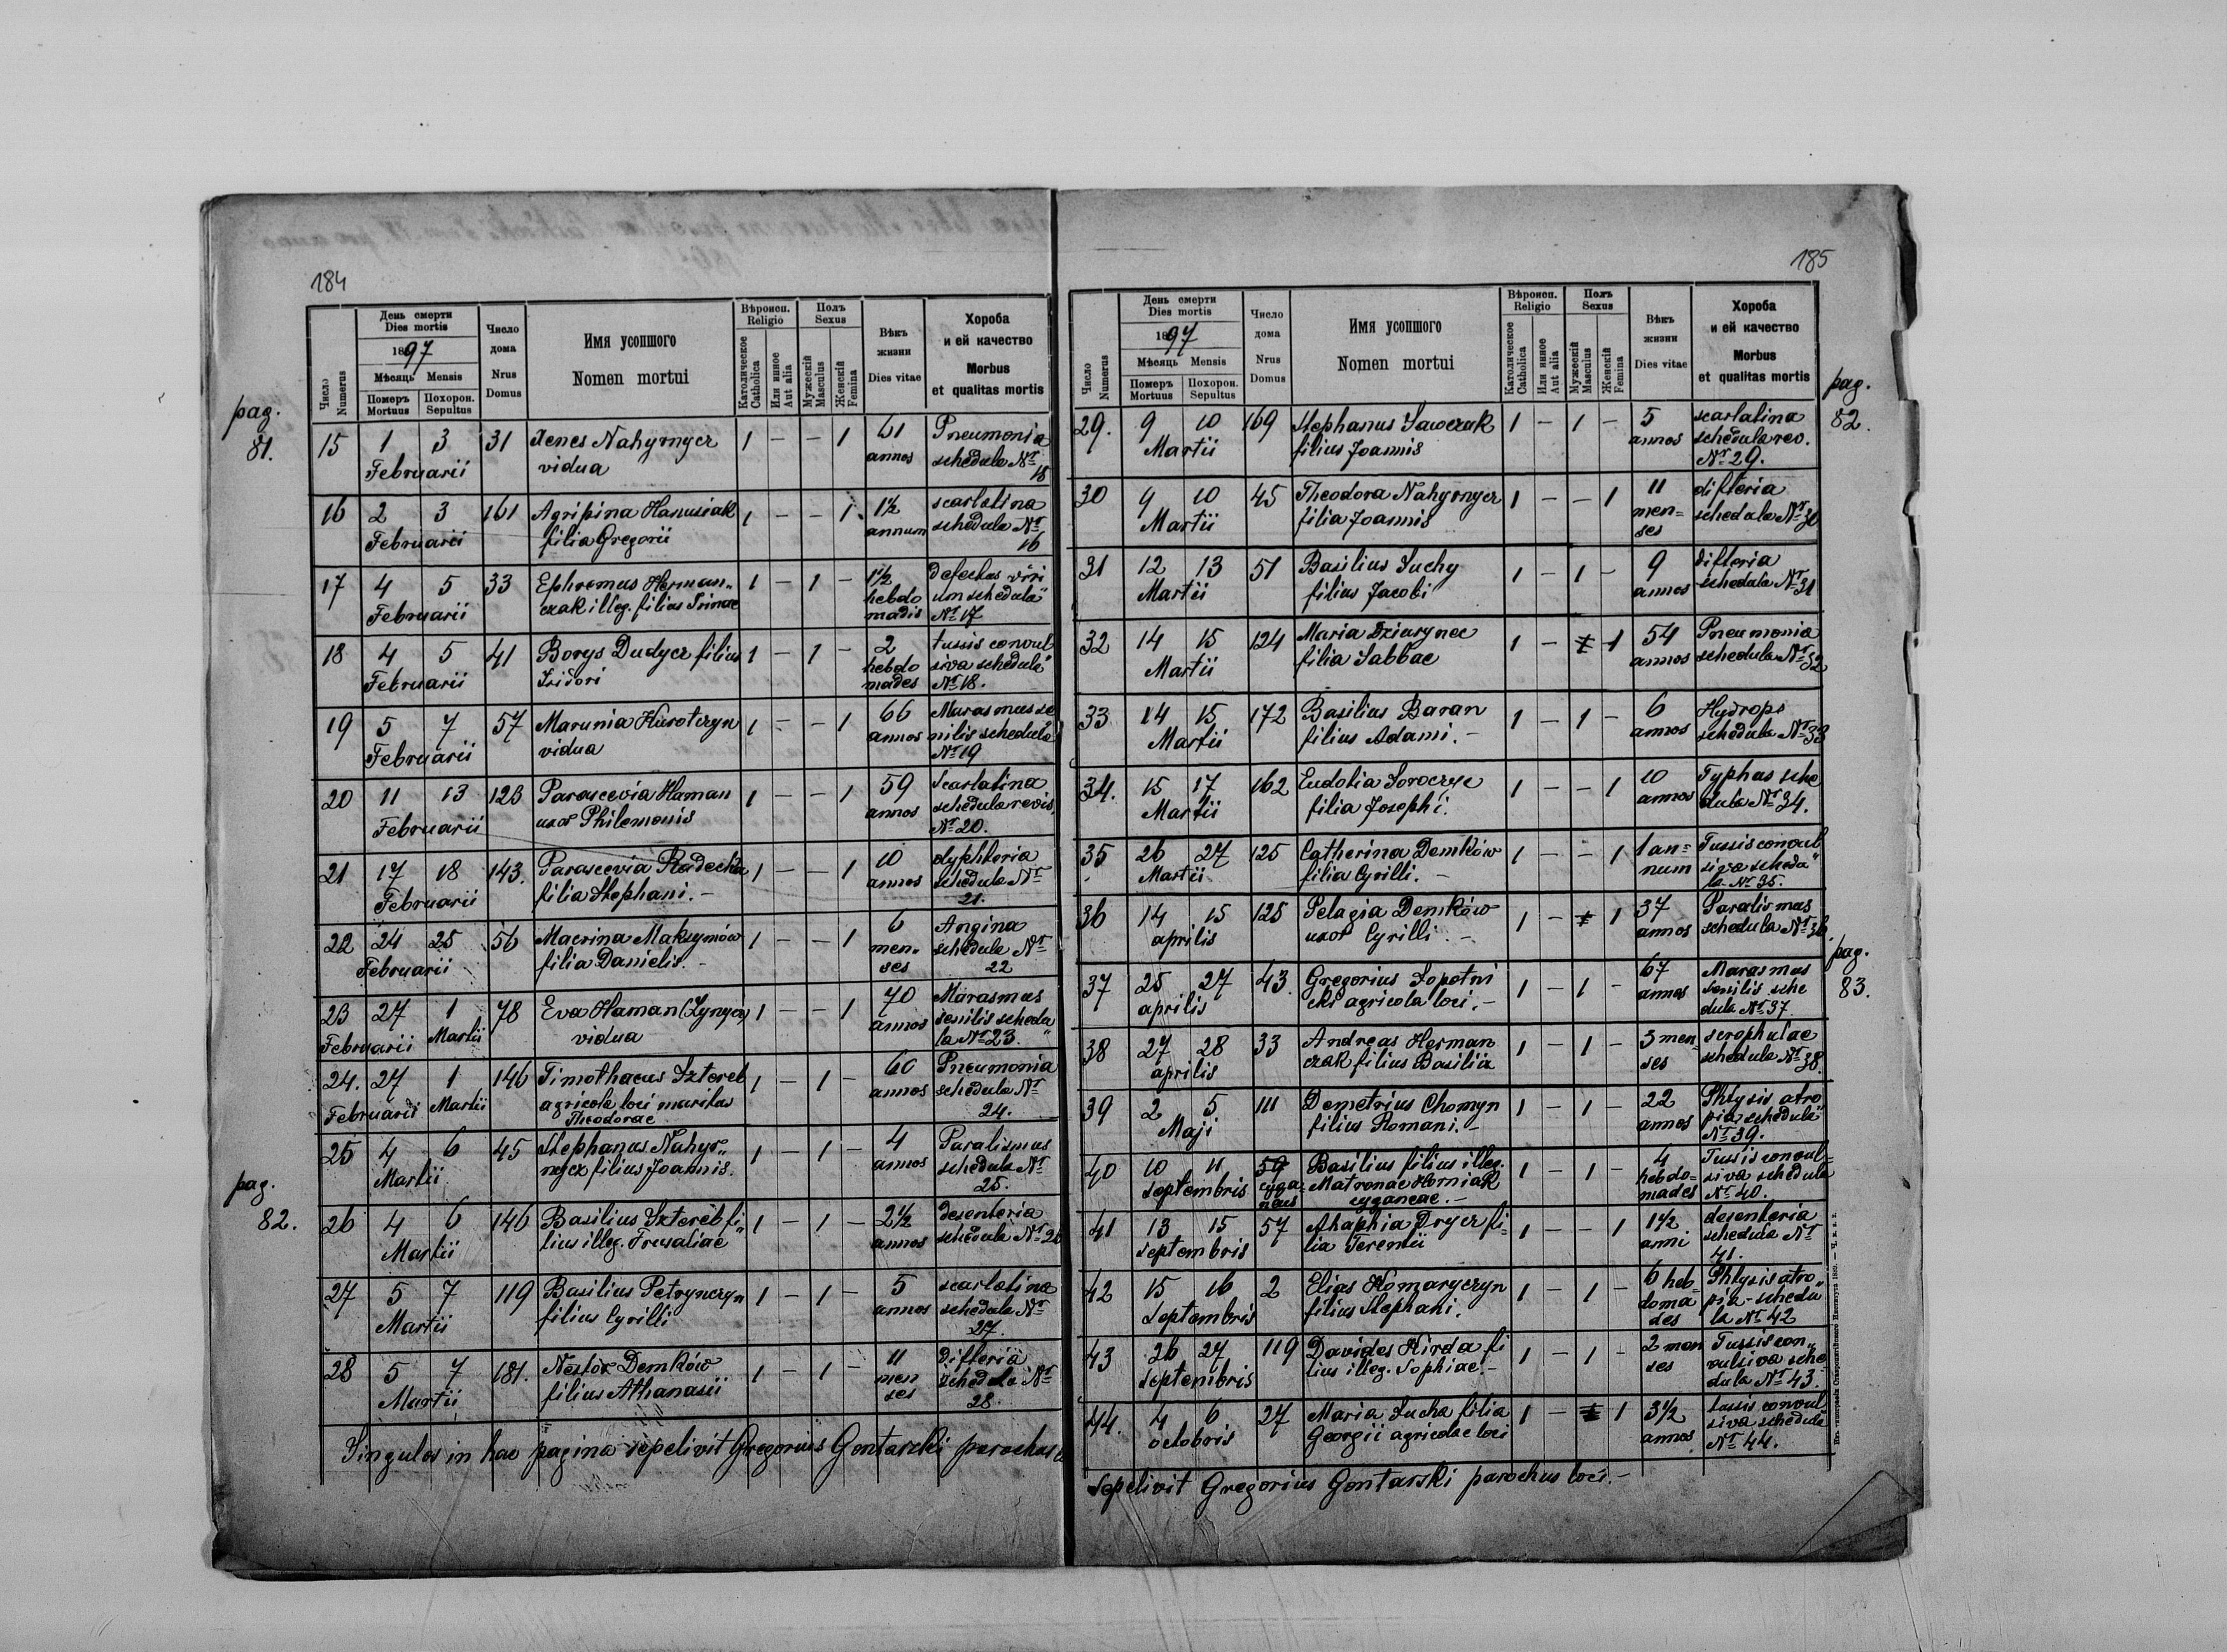 184
pag.
81.
Число
Numerus
День смерти
Dies mortis
1897
Мѣсяць Mensis
Померъ
Mortuus
Похорон.
Sepultus
Число
дома
Nrus
Domus
Имя усопшого
Nomen mortui
Вѣроисп.
Religio
Католическое
Catholica
Или инное
Aut alia
Полъ
Sexus
Мужескій
Masculus
Женскій
Femina
Вѣкъ
жизни
Dies vitae
Хороба
и ей качество
Morbus
et qualitas mortis
15 1 3 31 Xenes Nahyrnycz 1 – – 1 61 Pneumonia
Februarii vidua annos schedula Nr
15
16 2 3 161 Agripina Hanusiak 1 – – 1 1½ scarlatina
Februarii filia Gregorii annum schedula Nr
16
17 4 5 33 Ephremus Herman„ 1 – 1 – 1½ Defectus viri
Februarii czak illeg. filius Irinae hebdo um schedula
madis Nr 17
18 4 5 41 Borys Dudycz filius 1 – 1 – 2 tussis convul
Februarii Isidori hebdo siva schedula
mades Nr 18.
19 5 7 57 Marunia Kurotczyn 1 – – 1 66 Marasmus se
Februarii vidua annos nilis schedula
Nr 19
20 11 13 123 Parascevia Haman 1 – – 1 59 Scarlatina
Februarii uxor Philemonis annos schedula revis.
Nr 20.
21 17 18 143. Parascevia Radecka 1 – – 1 10 dyphteria
Februarii filia Stephani. – annos schedula Nr
21.
22 24 25 56 Macrina Maksymów 1 – – 1 6 Angina
Februarii filia Danielis. – men„ schedula Nr
ses 22
23 27 1 78 Eva Haman (Zynycz) 1 – – 1 70 Marasmus
Februarii Martii vidua annos senilis schedu
la Nr 23.
24. 27 1 146 Timothaeus Sztereb 1 – 1 – 60 Pneumonia
Februarii Martii agricola loci maritus annos schedula Nr
Theodorae 24.
25 4 6 45 Stephanus Nahyr„ 1 – 1 – 4 Paralismus
Martii nycz filius Joannis. annos schedula Nr
25.
pag.
82.
26 4 6 146 Basilius Sztereb fi 1 – 1 – 2½ desenteria
Martii lius illeg. Frusaliae annos schedula Nr 26
27 5 7 119 Basilius Petrynczyn 1 – 1 – 5 scarlatina
Martii filius Cyrilli annos schedula Nr
27.
28 5 7 181. Nestor Demków 1 – 1 – 11 difteria
Martii filius Athanasii men schedula Nr
ses 28.
Singulos in hac pagina sepelivit Gregorius Gontarski parochus
185
Число
Numerus
День смерти
Dies mortis
1897
Мѣсяць Mensis
Померъ
Mortuus
Похорон.
Sepultus
Число
дома
Nrus
Domus
Имя усопшого
Nomen mortui
Вѣроисп.
Religio
Католическое
Catholica
Или инное
Aut alia
Полъ
Sexus
Мужескій
Masculus
Женскій
Femina
Вѣкъ
жизни
Dies vitae
Хороба
и ей качество
Morbus
et qualitas mortis
pag.
82.
29. 9 10 169 Stephanus Sawczak 1 – 1 – 5 scarlatina
Martii filius Joannis annos schedula rev.
Nr 29.
30 9 10 45 Theodora Nahyrnycz 1 – – 1 11 difteria
Martii filia Joannis men= schedula Nr 30
ses
31 12 13 51 Basilius Suchy 1 – 1 – 9 difteria
Martii filius Jacobi annos schedula Nr 31
32 14 15 124 Maria Dziurynec 1 – 1 54 Pneumonia
Martii filia Sabbae annos schedula Nr 32
33 14 15 172 Basilius Baran 1 – 1 – 6 Hydrops
Martii filius Adami. – annos schedula Nr 33
34. 15 17 162 Eudokia Soroczyc 1 – – 1 10 Typhus sche
Martii filia Josephi. annos dula Nr 34.
35 26 27 125 Catherina Demków 1 – – 1 1 an= Tussis convul
Martii filia Cyrilli. – num siva schedu
la Nr 35.
36 14 15 125 Pelagia Demków 1 – 1 37 Paralismus
aprilis uxor Cyrilli. – annos schedula Nr 36
pag.
83.
37 25 27 43. Gregorius Sopotni 1 – 1 – 67 Marasmus
aprilis cki agricola loci. – annos senilis sche
dula Nr 37
38 27 28 33 Andreas Herman 1 – 1 – 3 men= scrophulae
aprilis czak filius Basilii ses schedula Nr 38.
39 2 5 111 Demetrius Chomyn 1 – 1 – 22 Phtysis atro
Maji filius Romani. – annos pia schedula
Nr 39.
40 10 11 59 Basilius filius illeg. 1 – 1 – 4 Tussis convul=
septembris cyga Matronae Horniak hebdo= siva schedula
neus cyganeae. – mades Nr 40.
41 13 15 57 Ahaphia Drycz fi= 1 – – 1 1½ desenteria
septembris lia Teremii anni schedula Nr
41.
42 15 16 2 Elias Komaryczyn 1 – 1 – 6 heb= Phtysis atro„
septembris filius Stephani. doma pia – schedu
des la Nr 42
43 26 27 119 Davides Kirda fi 1 – 1 – 2 men Tussis con„
septembris lius illeg. Sophiae. – ses vulsiva sche
dula Nr 43.
44. 4 6 27 Maria Sucha filia 1 – 1 3½ tussis convul
octobris Georgii agricolae loci annos siva schedula
Nr 44.
Sepelivit Gregorius Gontarski parochus loci. –